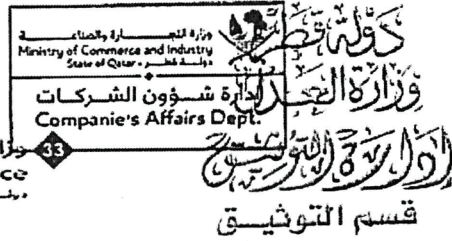 وزارة التجـــــارة والصناعـــــة
Ministry of Commerce and Industry
State of Qatar • دولـــة قطـــر
إدارة شــؤون الشــركـات
Companie's Affairs Dept.
33
دولة قطر
وزارة العدل
إدارة التوثيق
قسم التوثيـــق